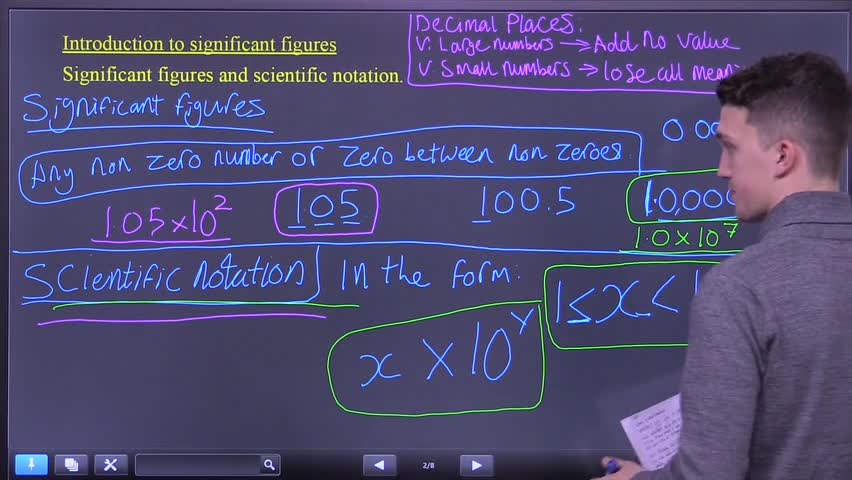 Introduction to significant figures
Significant figures and scientific notation.
Decimal Places:
V. Large numbers → Add no value
V. Small numbers → lose all
Significant figures
Any non zero number or zero between non zeroes.
1.05×10² 105 100.5
1.0×10⁷
Scientific notation in the form:
x × 10ʸ
1≤x<
2/8